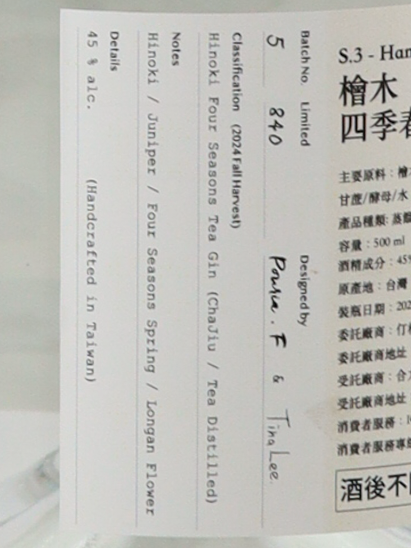 Batch No. Limited Designed by
5 840 Pouria . F & Tina Lee.
Classification (2024 Fall Harvest)
Hinoki Four Seasons Tea Gin (ChaJiu / Tea Distilled)
Notes
Hinoki / Juniper / Four Seasons Spring / Longan Flower
Details
45 % alc. (Handcrafted in Taiwan)
S.3 - Han
檜木
四季春
主要原料：檜木
甘蔗/酵母/水
產品種類: 蒸餾
容量：500 ml
酒精成分：45%
原產地：台灣
裝瓶日期：202
委託廠商：
委託廠商地址
受託廠商：合
受託廠商地址
消費者服務：
消費者服務專
酒後不